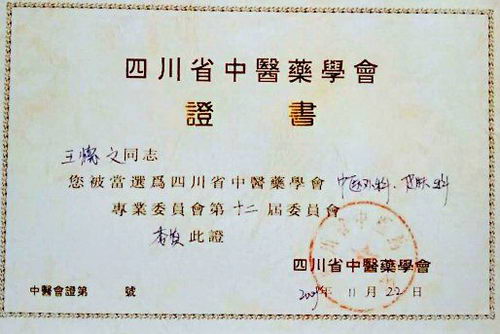 四川省中醫藥學會
證書
王燦之同志
您被當選爲四川省中醫藥學會中医外科、皮肤科
專業委員會第十二届委員會
委員此證
四川省中醫藥學會
年11月22日
中醫會證第 號